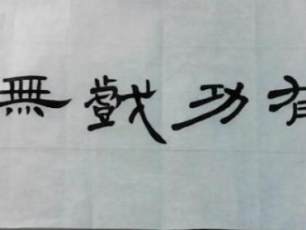 有功戲無